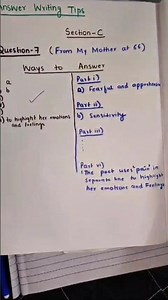 Answer Writing Tips
Section-C
Question-7 (From My Mother at 66)
Ways to Answer
Part i)
a) Fearful and apprehensive
Part ii)
b) Sensitivity
Part iii)
Part vi)
(The poet uses 'pain' in
separate line to highlight
her emotions and feelings
a
b
to highlight her emotions
and feelings